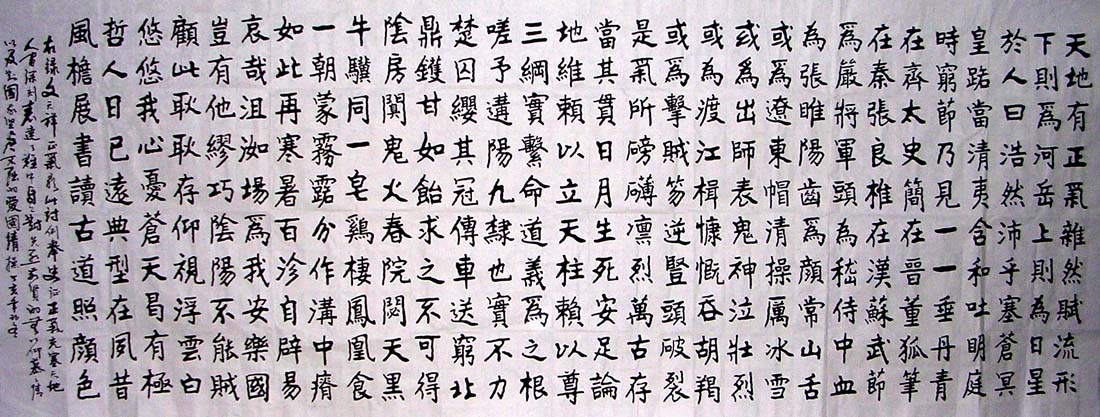 天地有正氣雜然賦流形
下則爲河岳上則為日星
於人曰浩然沛乎塞蒼冥
皇路當清夷含和吐明庭
時窮節乃見一一垂丹青
在齊太史簡在晉董狐筆
在秦張良椎在漢蘇武節
爲嚴將軍頭為嵇侍中血
為張睢陽齒爲顔常山舌
或爲遼東帽清操厲冰雪
或爲出師表鬼神泣壯烈
或爲渡江楫慷慨吞胡羯
或爲擊賊笏逆豎頭破裂
是氣所磅礴凛烈萬古存
當其貫日月生死安足論
地維賴以立天柱賴以尊
三綱實繫命道義爲之根
嗟予遘陽九隸也實不力
楚囚纓其冠傳車送窮北
鼎鑊甘如飴求之不可得
陰房闃鬼火春院閟天黑
牛驥同一皂鷄棲鳳凰食
一朝蒙霧露分作溝中瘠
如此再寒暑百沴自辟易
哀哉沮洳場爲我安樂國
豈有他繆巧陰陽不能賊
顧此耿耿存仰視浮雲白
悠悠我心憂蒼天曷有極
哲人日已遠典型在夙昔
風檐展書讀古道照顔色
右錄文天祥正氣歌此詩列舉正氣充塞天地
深刻表達了
以及愛國精神